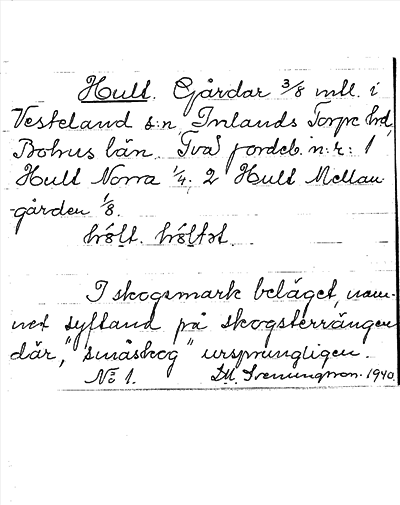 Hult. Gårdar 3/8 mtl. i
Vesteland s:n, Inlands Torpe hrd,
Bohus län. Två jordeb. n:r: 1
Hult Norra 1/4; 2 Hult Mellan-
gården 1/8.
hól̥t. hól̥tət.
I skogsmark beläget, nam-
net syftand på skogsterrängen
där, "småskog" ursprungligen.
No 1. Svenungsson. 1940.